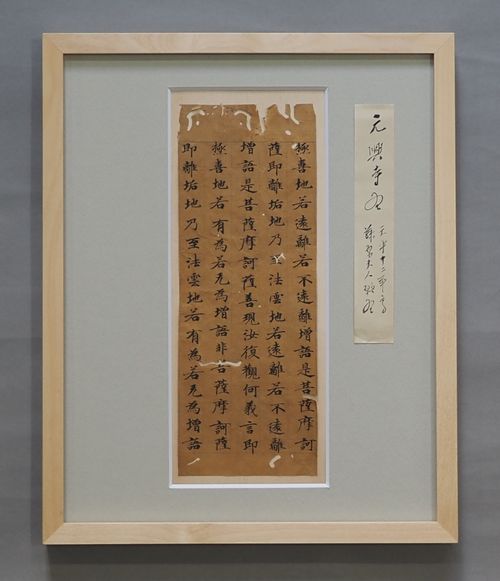 元興寺切
天平十二年
藤原夫人願切
極喜地若遠離若不遠離增語是菩薩摩訶
薩即離垢地乃至法雲地若遠離若不遠離
增語是菩薩摩訶薩善現汝復觀何義言即
極喜地若有為若无為增語非菩薩摩訶薩
即離垢地乃至法雲地若有為若无為增語